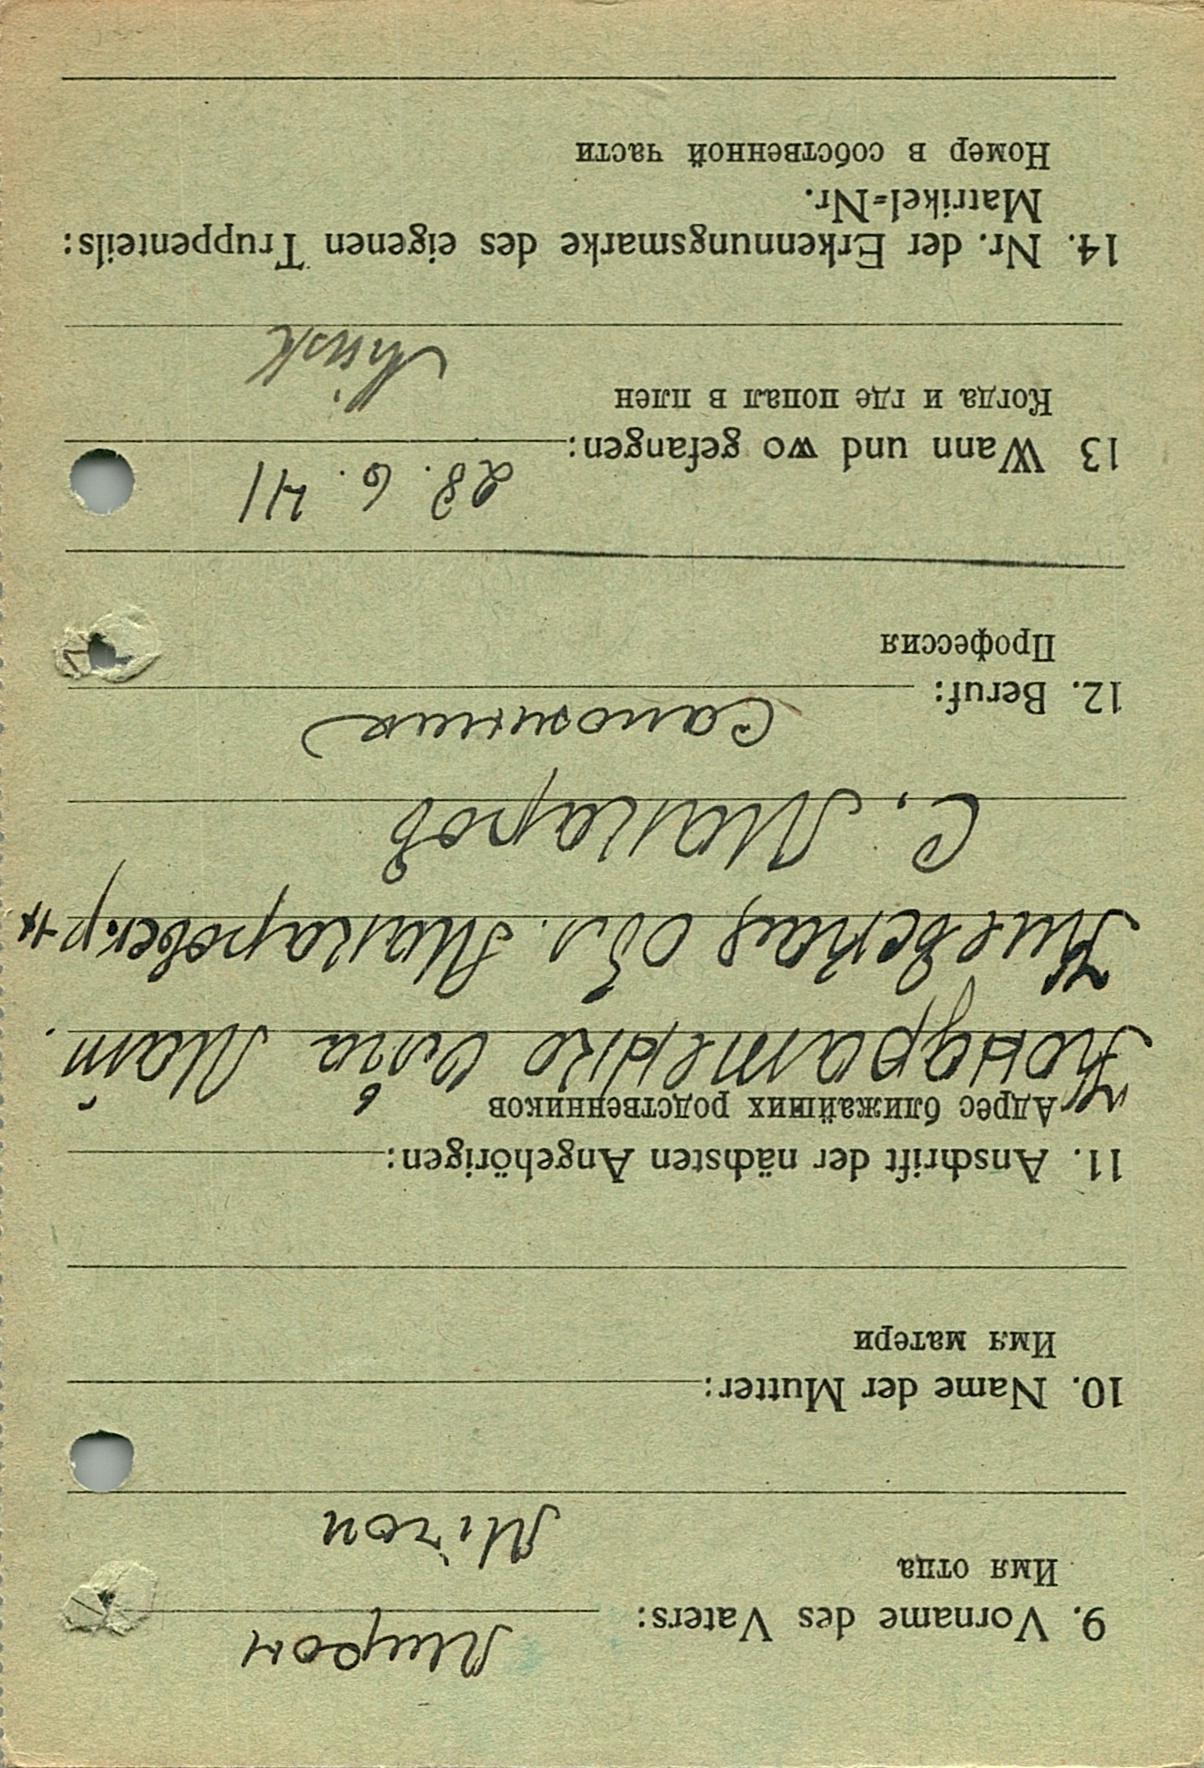 Мирон
9. Vorname des Vaters:
Имя отца
Miron
10. Name der Mutter:
Имя матери
11. Anschrift der nächsten Angehörigen:
Адрес ближайших родственников
Кондратенко Мат.
Киевская обл. Макаровск. р-н
С. Макаров
Сапожник
12. Beruf:
Профессия
28. 6. 41
13 Wann und wo gefangen:
Когда и где попал в плен
Minsk
14. Nr. der Erkennungsmarke des eigenen Truppenteils:
Matrikel=Nr.
Номер в собственной части